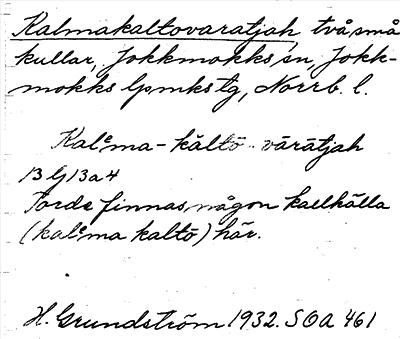 Kalmakaltovaratjah, två små
kullar, Jokkmokks sn, Jokk-
mokks lpmks tg, Norrb. l.
Kalᵉma-kāltō-vārātjah
13 G 13 a 4
Torde finnas någon kallkälla
(kalᵉma kaltō) här.
H. Grundström 1932. SOA 461